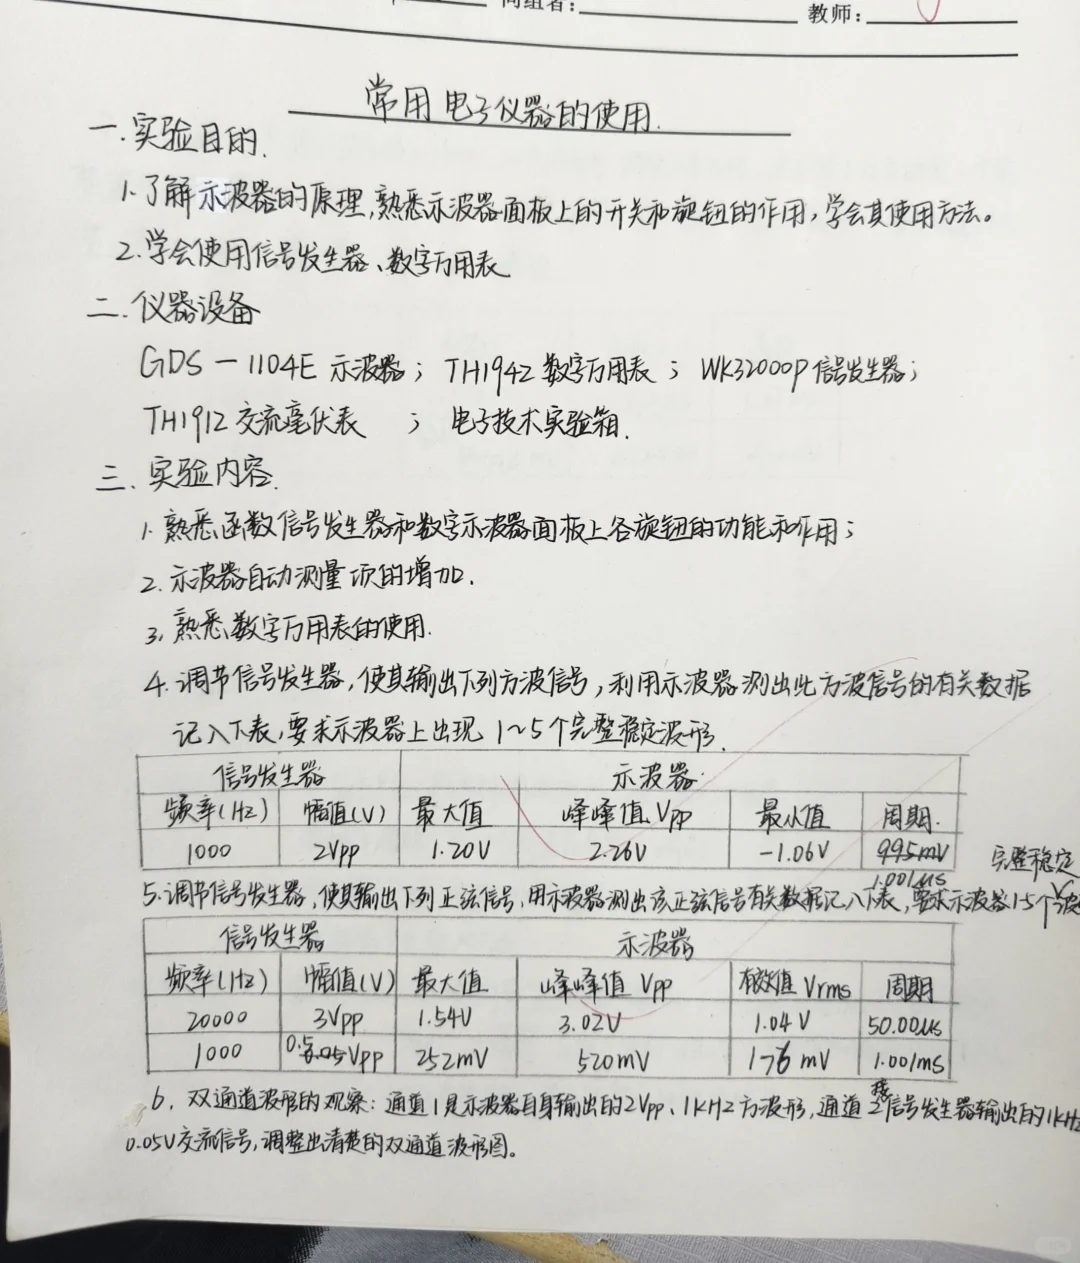 同组者: 教师:
常用电子仪器的使用.
一.实验目的.
1.了解示波器的原理,熟悉示波器面板上的开关和旋钮的作用,学会其使用方法。
2.学会使用信号发生器、数字万用表
二.仪器设备
GDS-1104E 示波器; TH1942 数字万用表; WK32000P 信号发生器;
TH1912 交流毫伏表 ; 电子技术实验箱.
三.实验内容.
1.熟悉函数信号发生器和数字示波器面板上各旋钮的功能和作用;
2.示波器自动测量项的增加.
3.熟悉数字万用表的使用.
4.调节信号发生器,使其输出下列方波信号,利用示波器测出此方波信号的有关数据
记入下表,要求示波器上出现 1~5个完整稳定波形.
信号发生器 示波器.
频率(Hz) 幅值(V) 最大值 峰峰值Vpp 最小值 周期.
1000 2Vpp 1.20V 2.26V -1.06V 995mV
1.001μs
完整稳定
5.调节信号发生器,使其输出下列正弦信号,用示波器测出该正弦信号有关数据记入下表,要求示波器1-5个波
信号发生器 示波器
频率(Hz) 幅值(V) 最大值 峰峰值 Vpp 有效值 Vrms 周期
20000 3Vpp 1.54V 3.02V 1.04V 50.00μs
1000 0.5Vpp 252mV 520mV 176mV 1.001ms
6.双通道波形的观察:通道1是示波器自身输出的2Vpp、1KHz方波形,通道2接信号发生器输出的1KHz
0.05V交流信号,调整出清楚的双通道波形图。